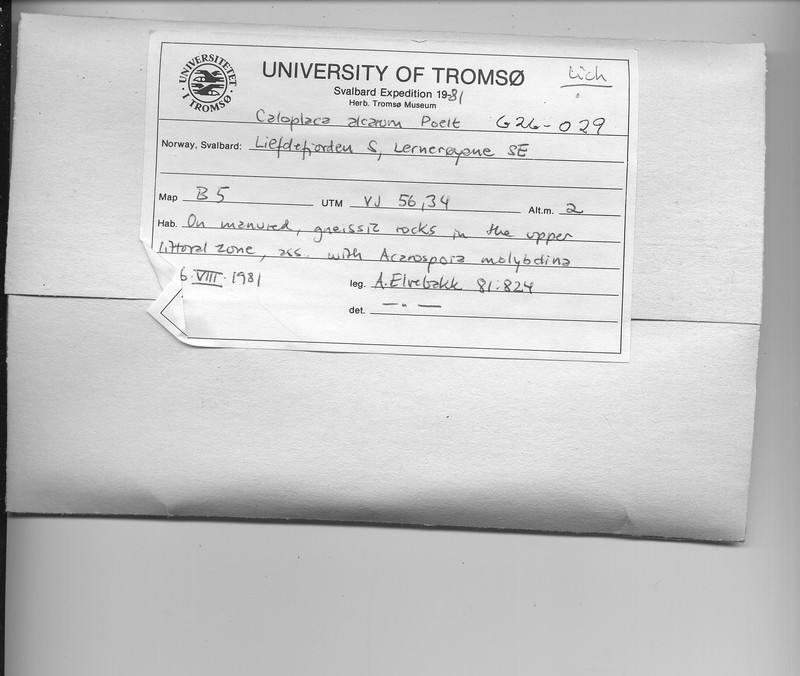 UNIVERSITETET I TROMSØ
UNIVERSITY OF TROMSØ
Lich
Svalbard Expedition 1981
Herb. Tromsø Museum
Caloplaca alcarum Poelt G26-029
Norway, Svalbard: Liefdefjorden S, Lernerøyane SE
Map B5 UTM VJ 56,34 Alt.m. 2
Hab. On manured, gneissic rocks in the upper
littoral zone, ass. with Acarospora molybdina
6. VIII. 1981 leg. A. Elvebakk 81:824
det. — " —